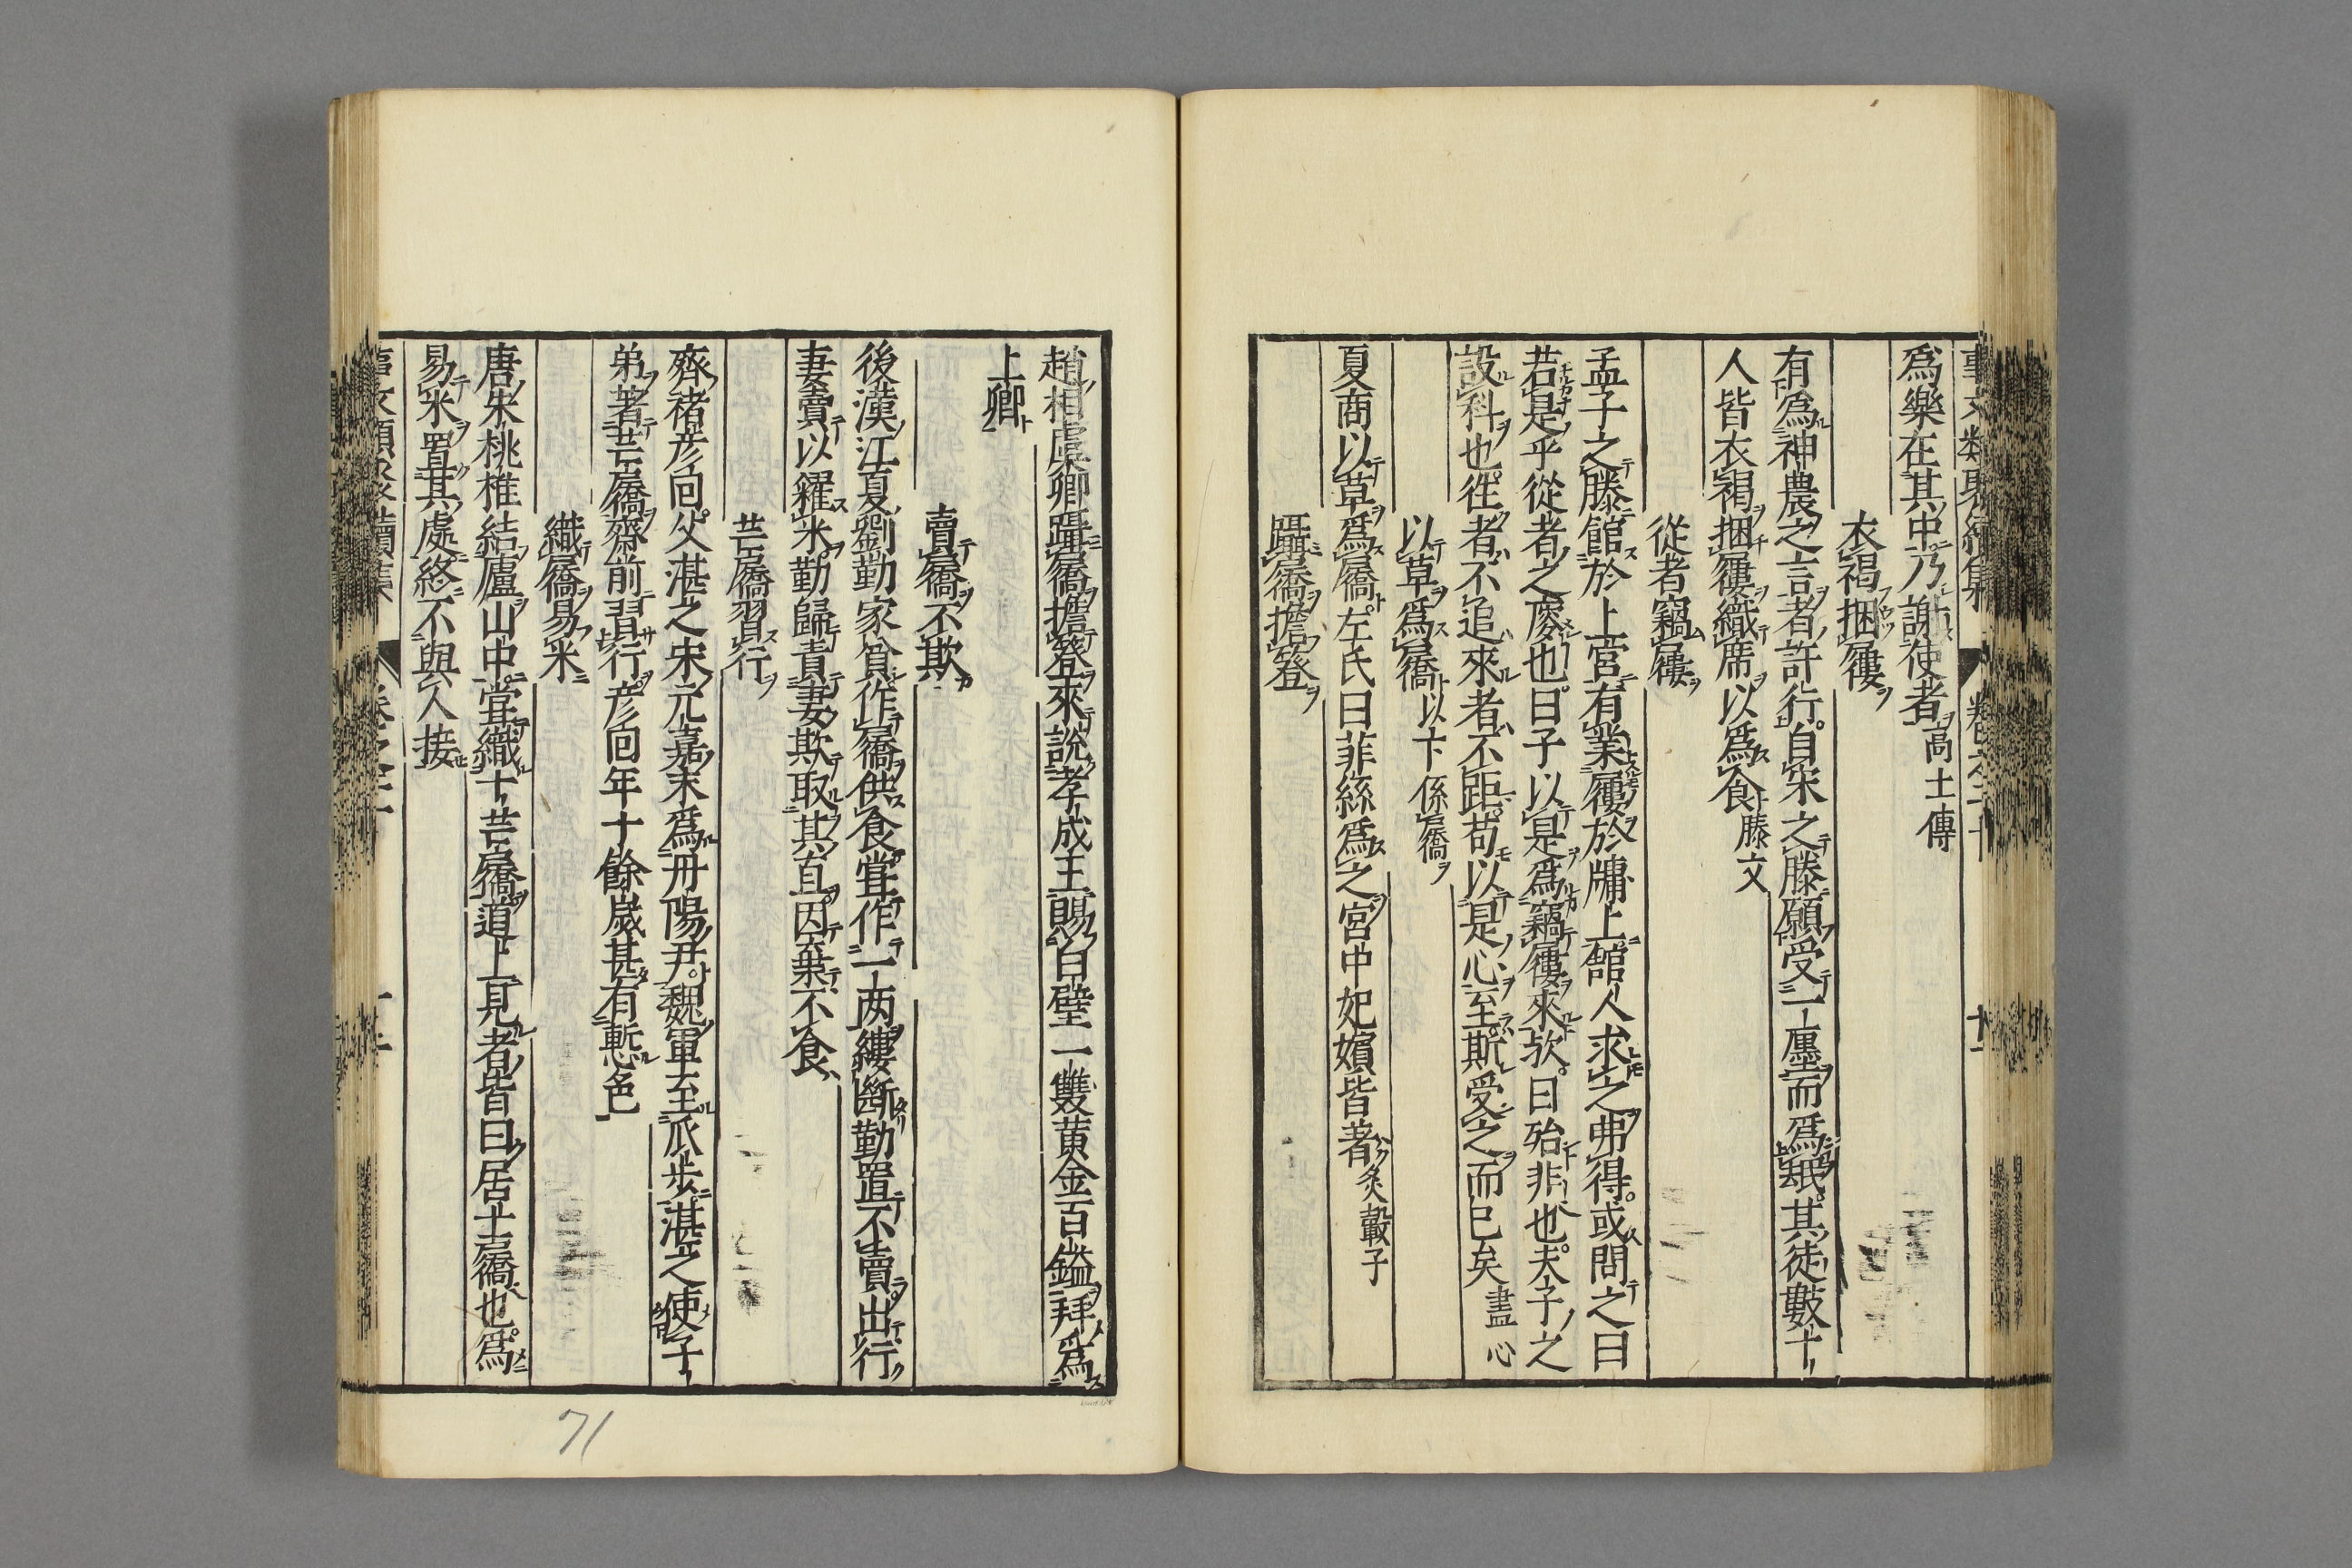 事文類聚續集 卷之二十 十一
爲樂在其中乃謝使者高士傳
衣褐捆屨
有爲神農之言者許行自宋之滕願受一廛而爲氓其徒數十
人皆衣褐捆屨織席以爲食滕文
從者竊屨
孟子之滕館於上宮有業屨於牖上館人求之弗得或問之曰
若是乎從者之廋也曰子以是爲竊屨來歟曰殆非也夫子之
設科也往者不追來者不距苟以是心至斯受之而已矣盡心
以草爲屩以下係屩
夏商以草爲屩左氏曰菲絲爲之宮中妃嬪皆著炙轂子
躡屩擔簦
趙相虞卿躡屩擔簦來說孝成王賜白璧一雙黄金百鎰拜爲
上卿
賣屩不欺
後漢江夏劉勤家貧作屩供食甞作一两縷斷勤置不賣出行
妻賣以糴米勤歸責妻欺取其直因棄不食
芒屩習行
齊禇彦囘父湛之宋元嘉末爲丹陽尹魏軍至瓜步湛之使子
弟著芒屩齋前習行彦囘年十餘歲甚有慙色
織屩易米
唐朱桃椎結廬山中甞織十芒屩道上見者皆曰居士屩也爲
易米置其處終不與人接
事文類聚續集 卷之二十
71